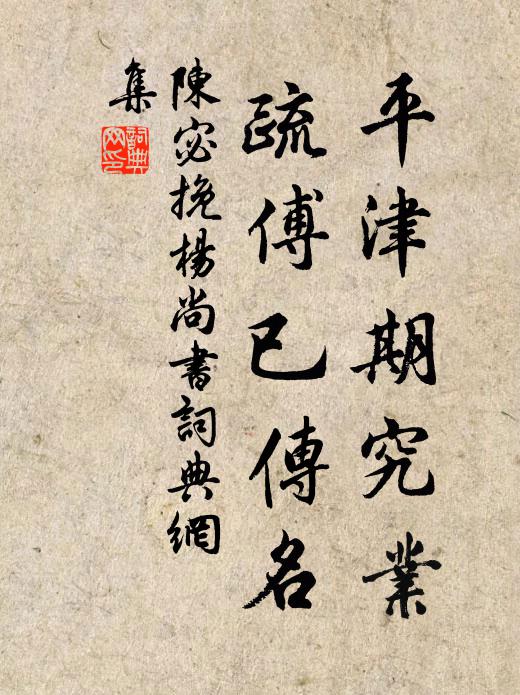 平津期究業
疏傅已傳名
陳宓挽楊尚書詞典網
集
詞典
网印